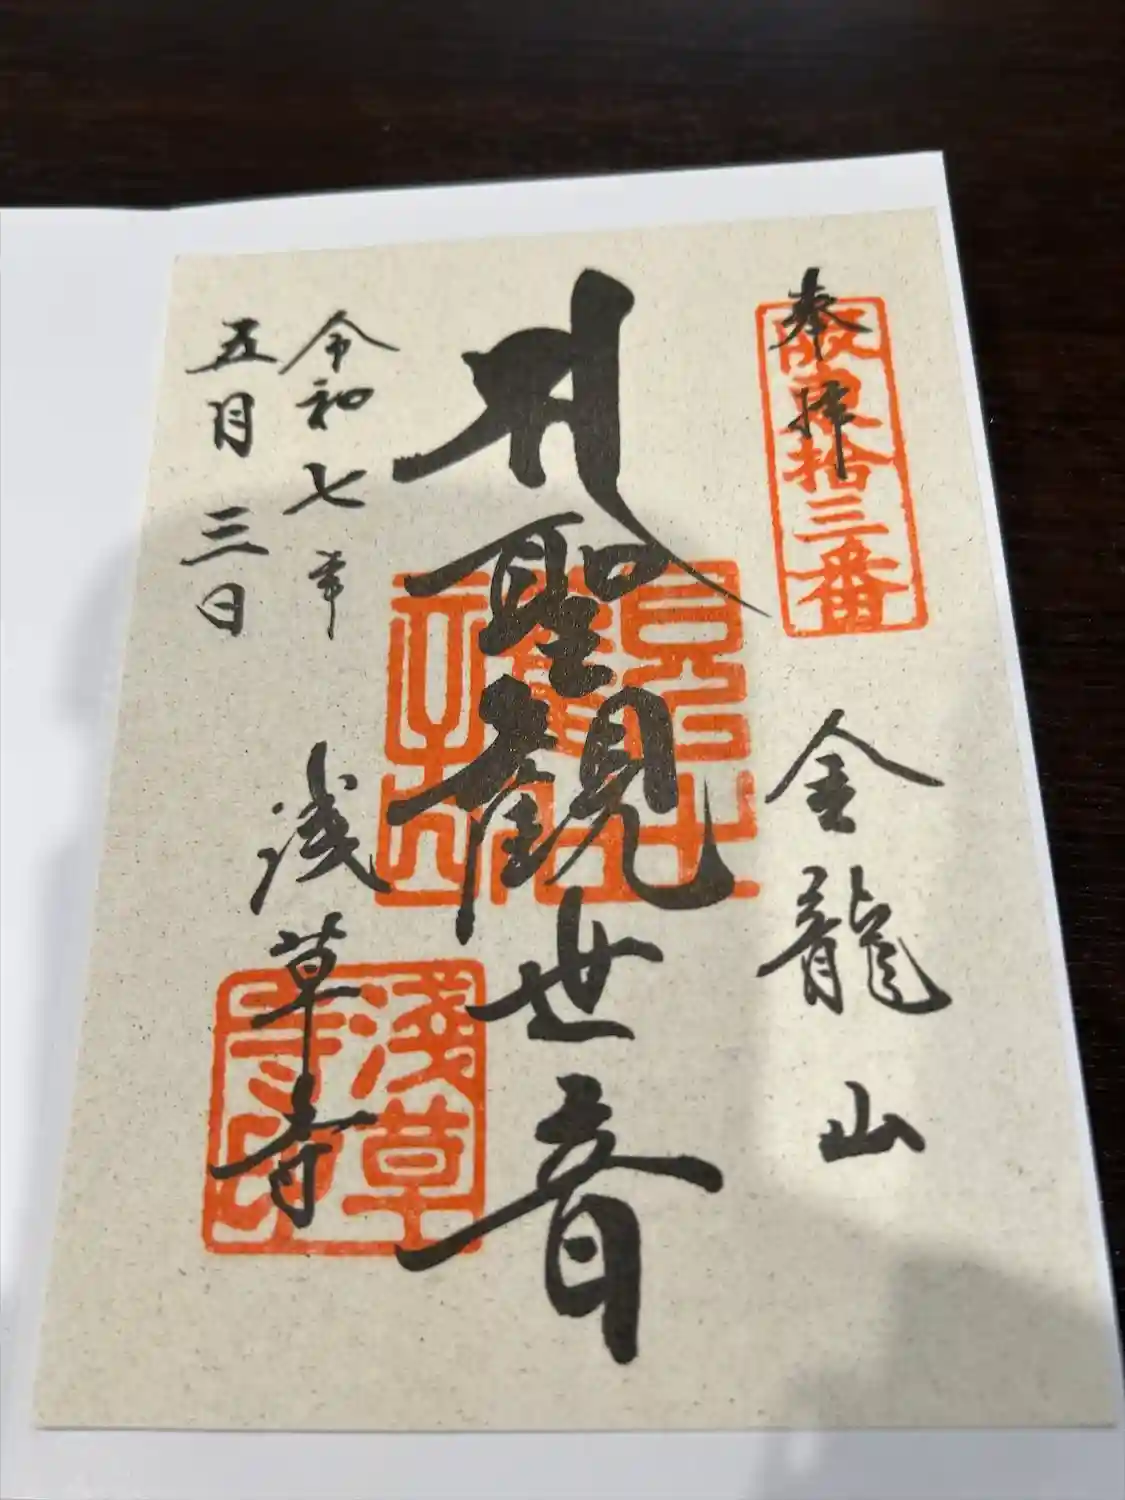 奉拝
坂東拾三番
金龍山
聖観世音
浅草寺
淺草寺印
令和七年
五月三日